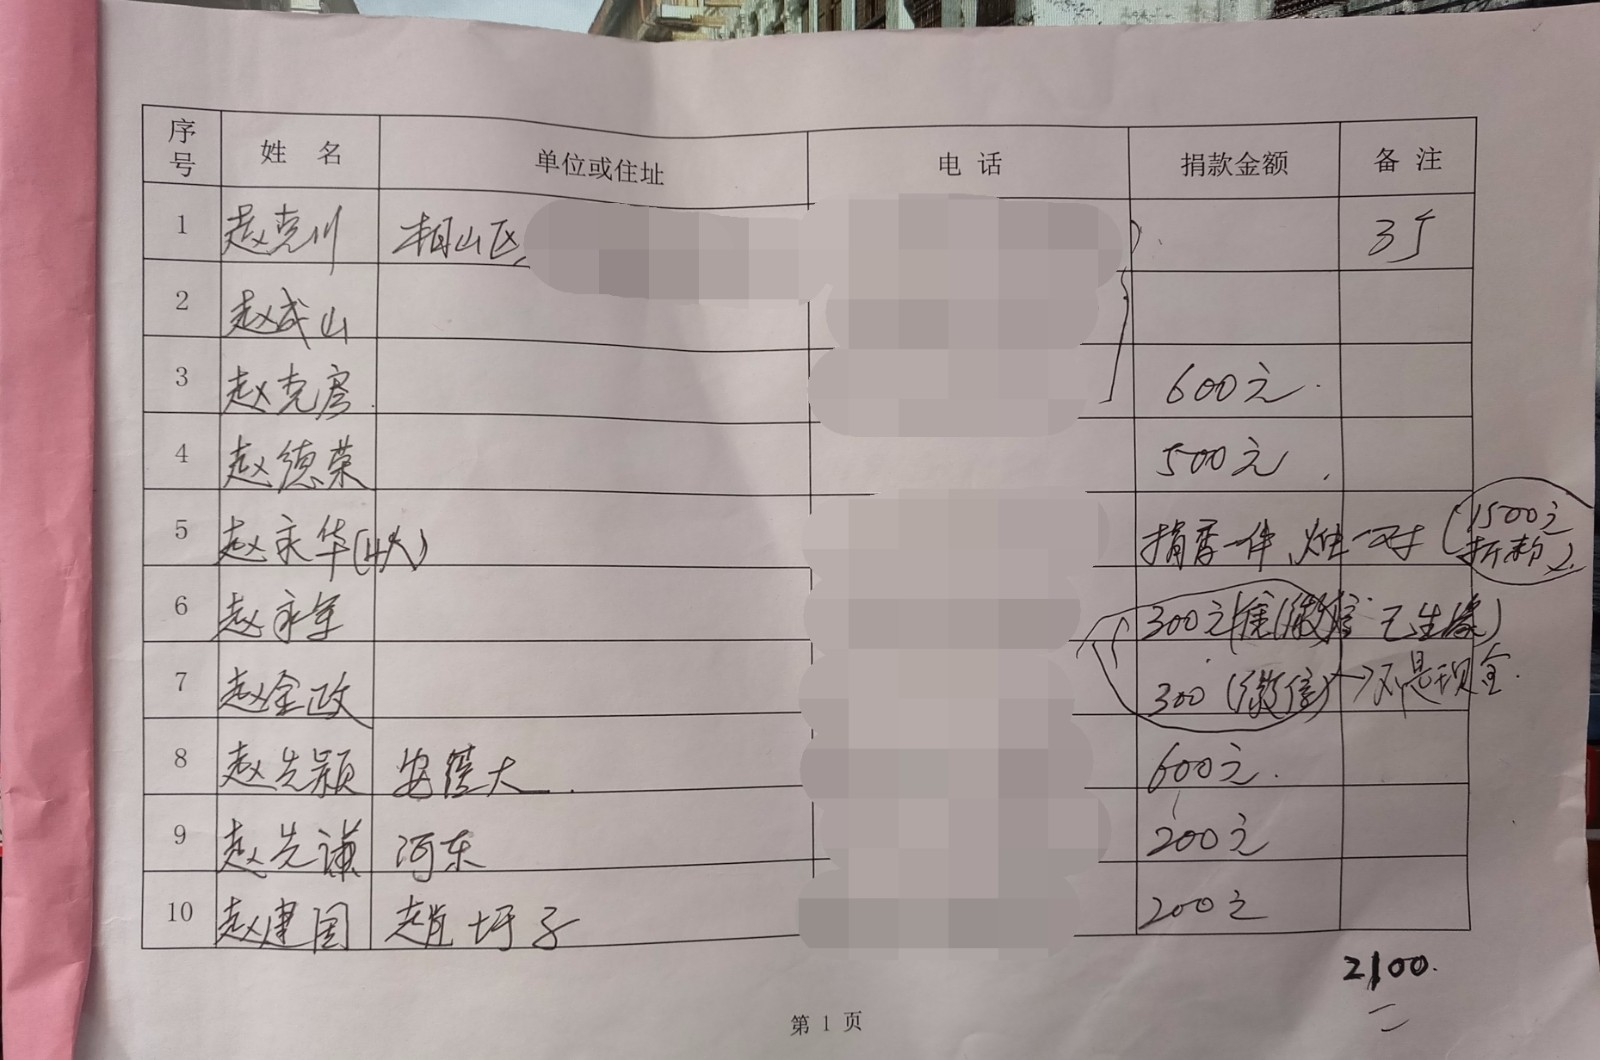 序号 姓名 单位或住址 电话 捐款金额 备注
1 赵克川 相山区 3斤
2 赵成山
3 赵克房 600元
4 赵德荣 500元
5 赵永华(4人) 捐香一件 炮一对 (1500元
折款)
6 赵永军 300元(微信
7 赵全政 300(微信)→不是现金
8 赵先颖 安徽大 600元
9 赵先谦 河东 200元
10 赵建国 赵圩子 200元
2100.
第 1 页